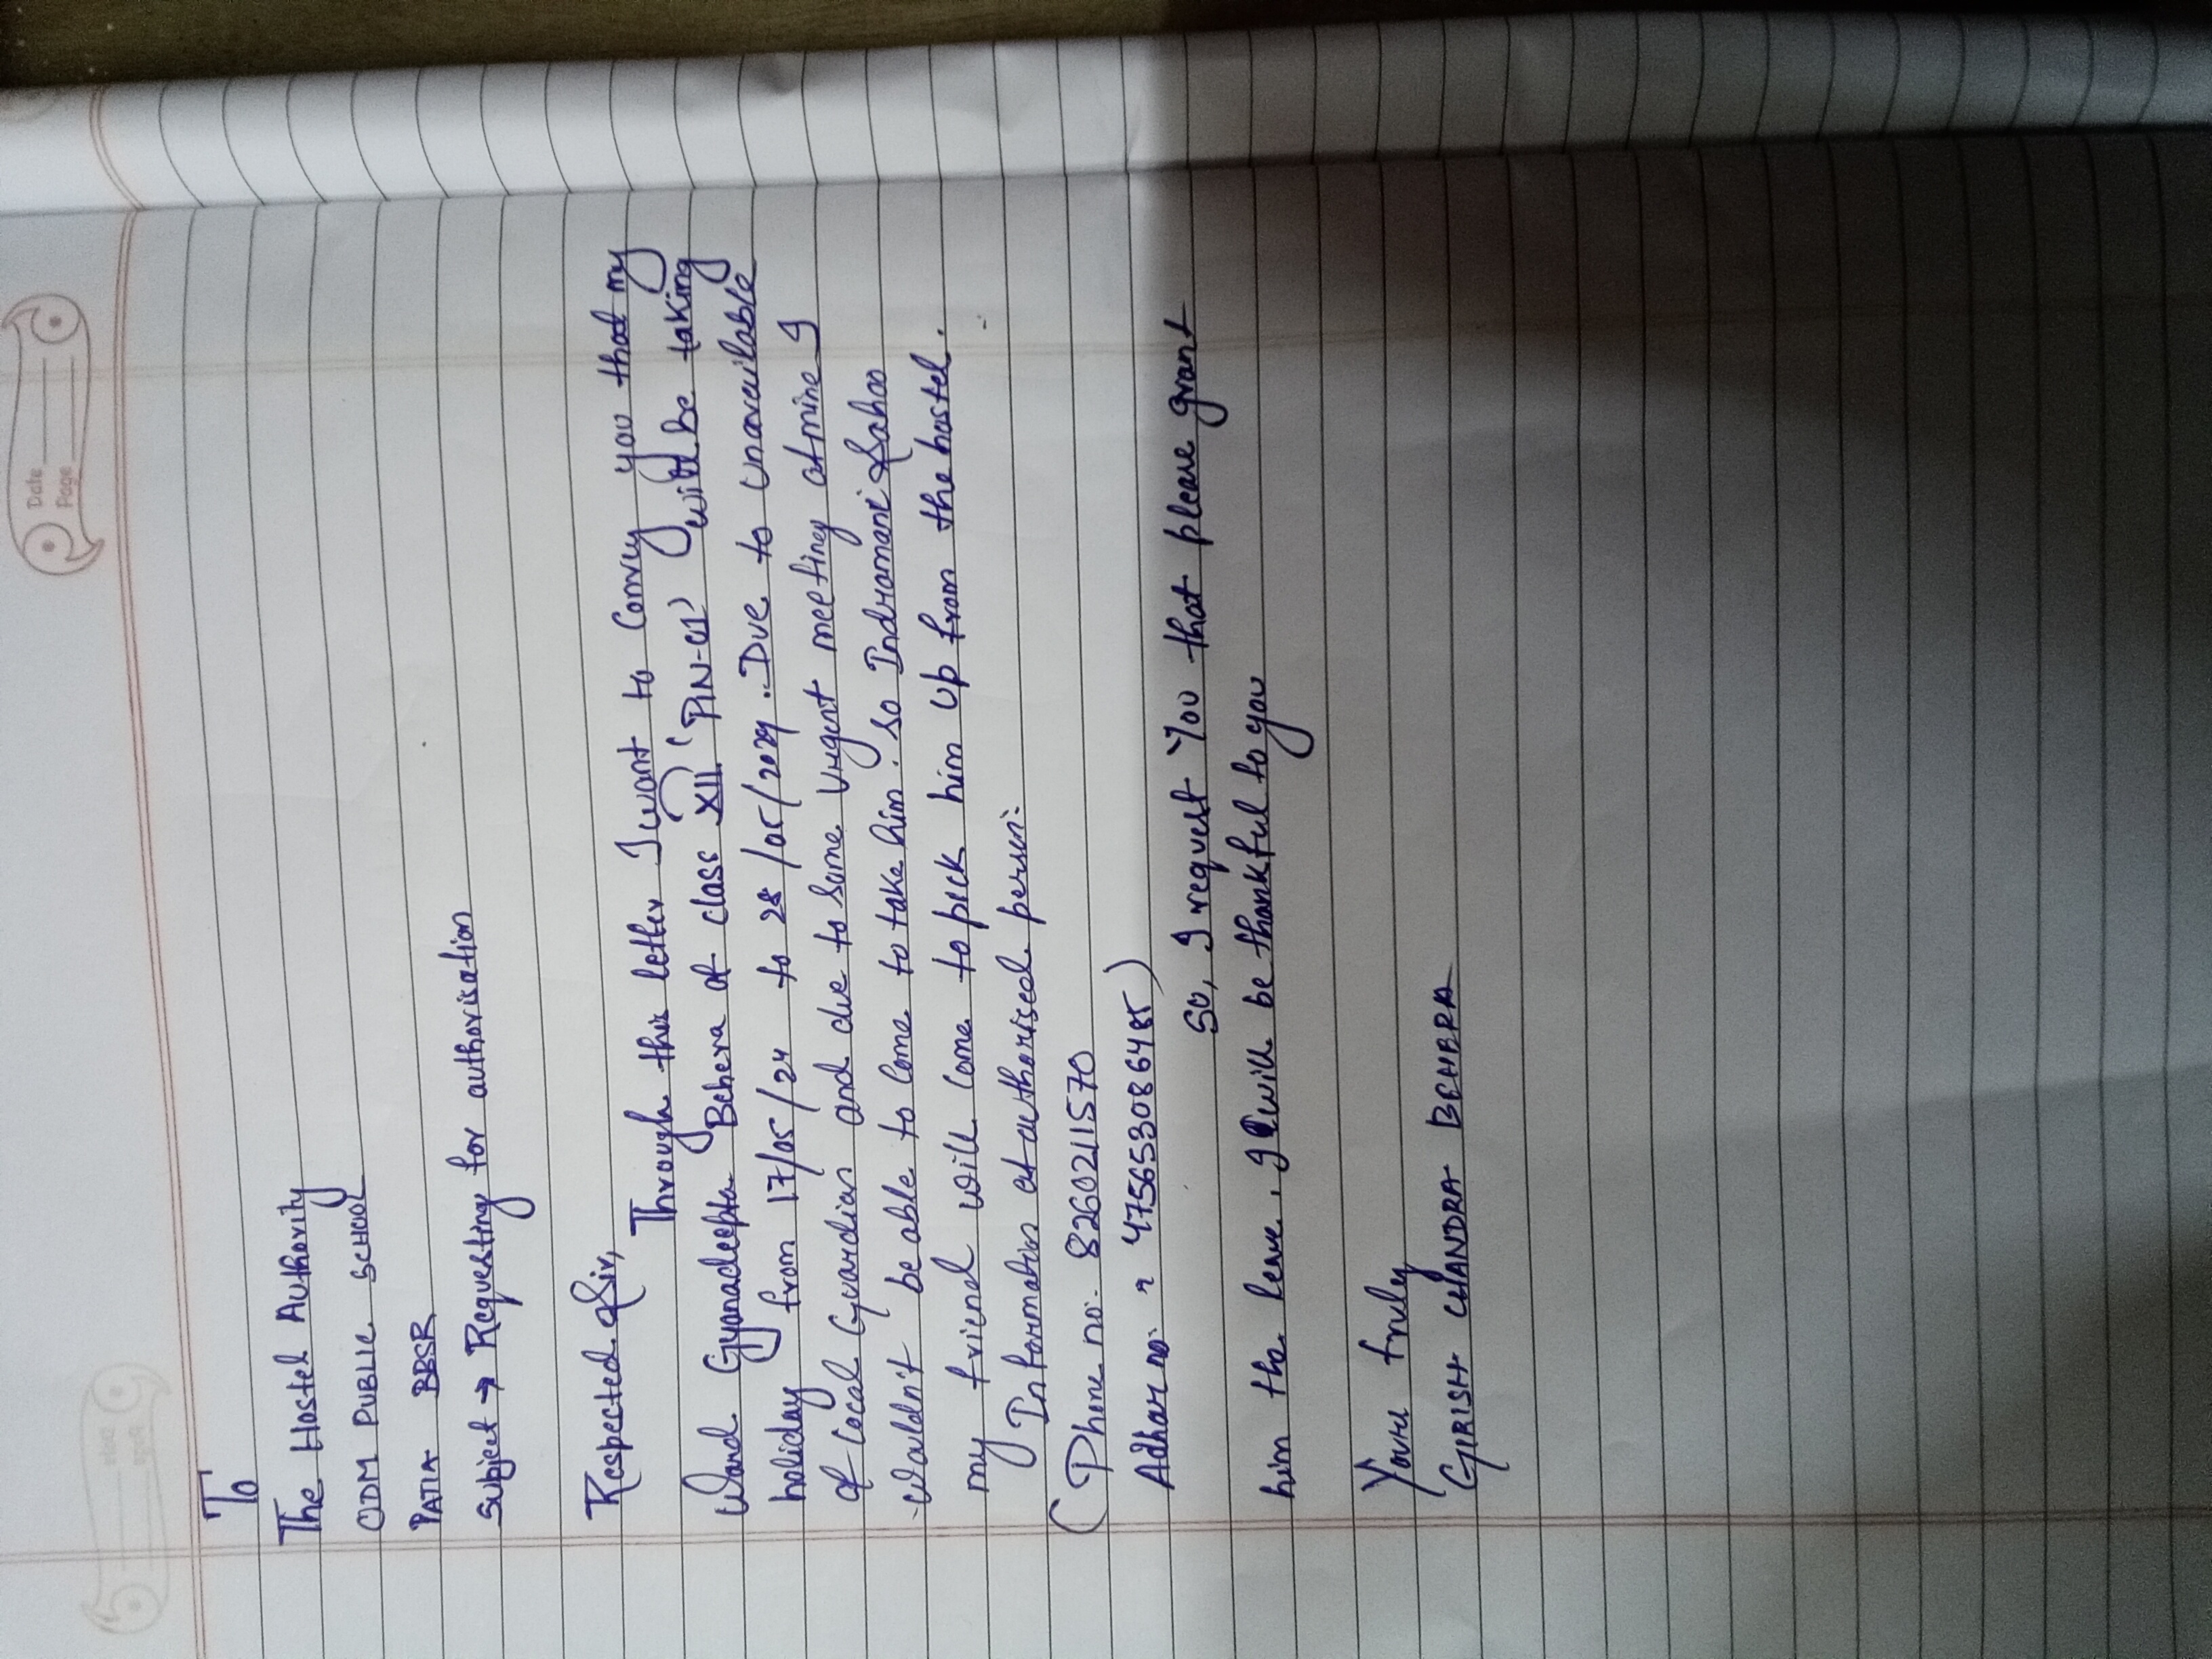 Date
Page
To
The Hostel Authority
ODM PUBLIC SCHOOL
PATIA BBSR
Subject → Requesting for authorisation
Respected Sir,
Through this letter I want to Convey you that my
Ward Gyanadeepta Behera of class XII (PIN-01) will be taking
holiday from 17/05/24 to 28/05/2024. Due to unavailable
of Local Guardian and due to some urgent meeting of mine I
wouldn't be able to come to take him. So Indramani Sahoo
my friend will come to pick him up from the hostel.
Information of authorised person:
(Phone no:- 8260211570
Adhar no: 475653086485)
So, I request You that please grant
him the leave. I will be thankful to you
Yours truly
GIRISH CHANDRA BEHERA